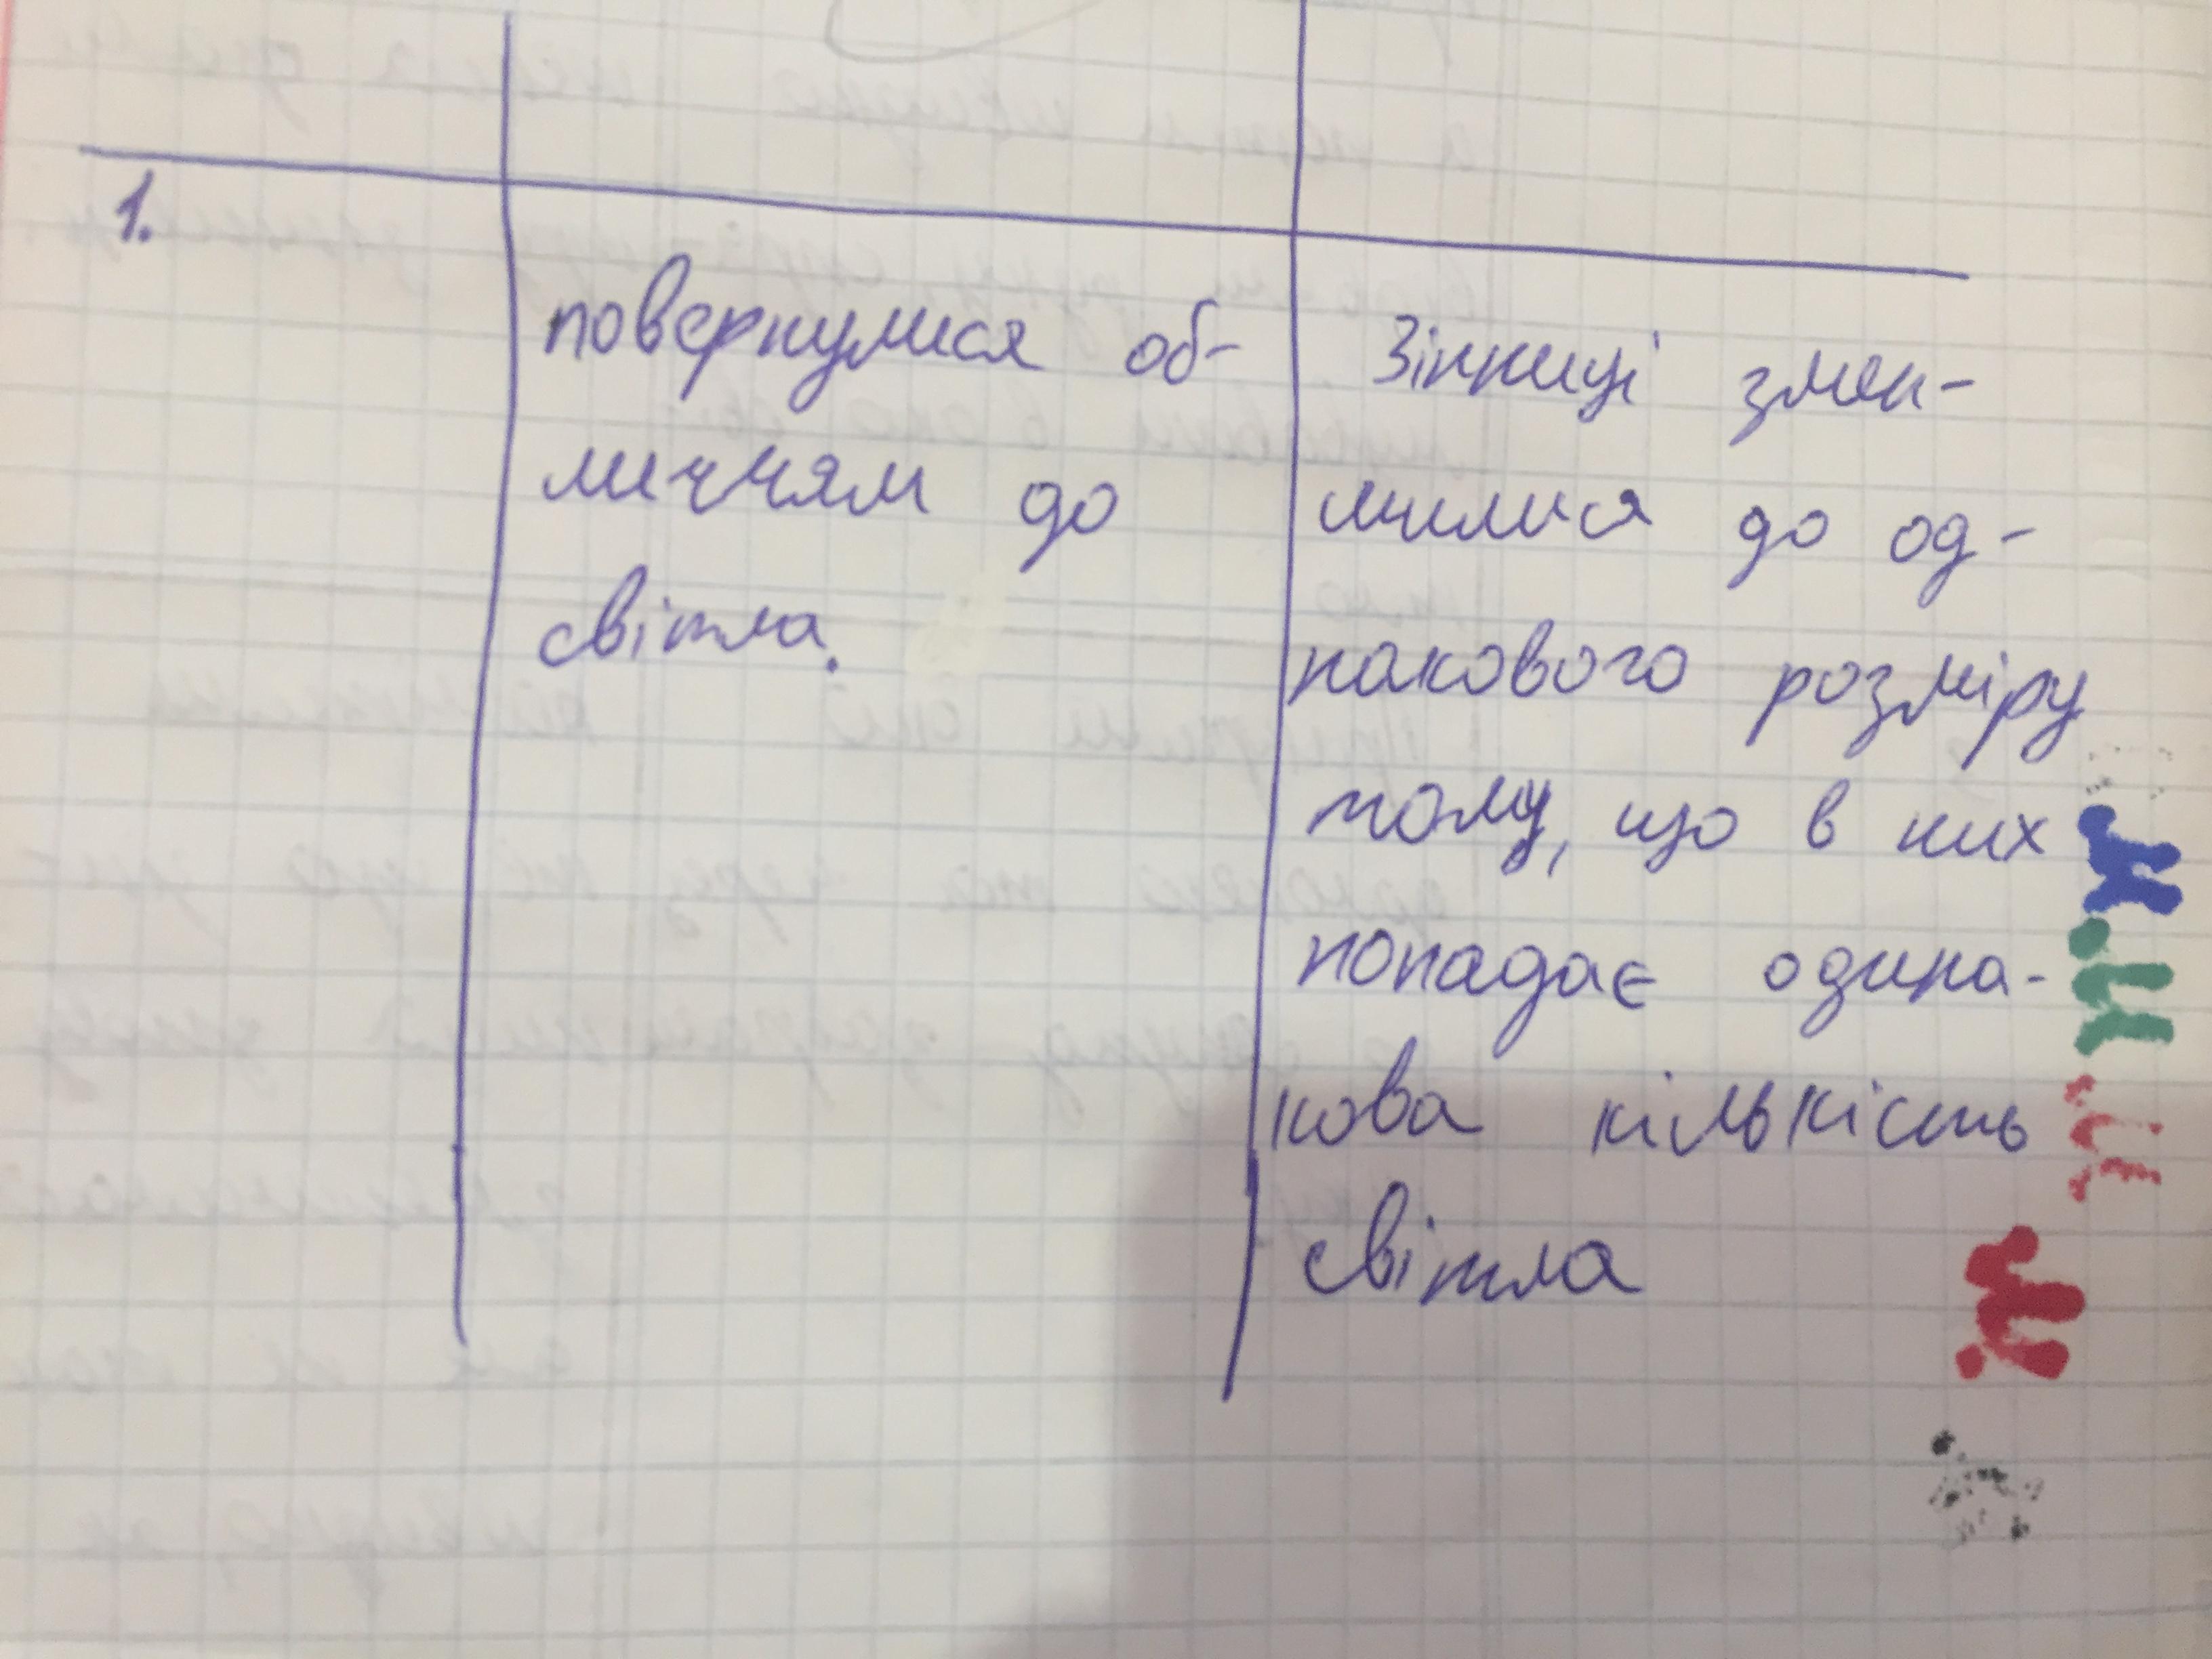 1.
повернулися об-
личчям до
світла.
Зіниці змен-
шилися до од-
накового розміру
тому, що в них
попадає одина-
кова кількість
світла